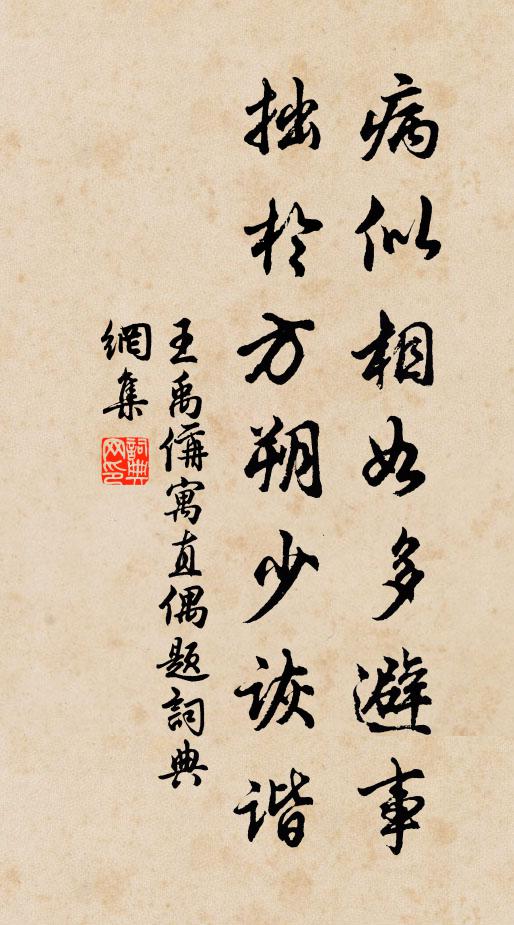 病似相如多避事
拙於方朔少诙谐
王禹偁寓直偶题詞典
網集
詞典网印